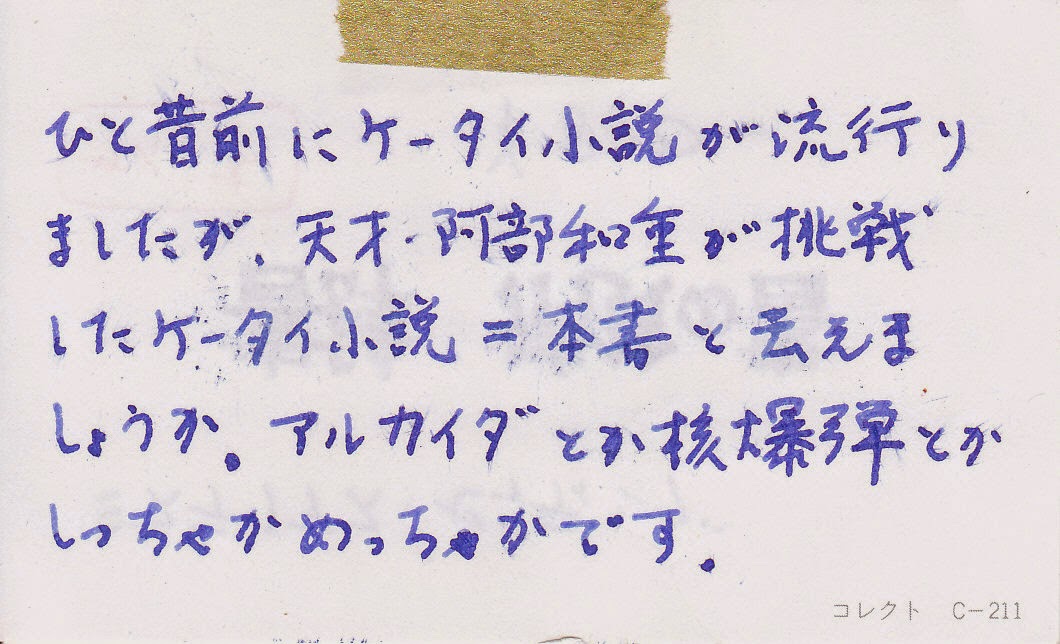 ひと昔前にケータイ小説が流行り
ましたが、天才・阿部和重が挑戦
したケータイ小説=本書と云えま
しょうか。アルカイダとか核爆弾とか
しっちゃかめっちゃかです.
コレクト C-211